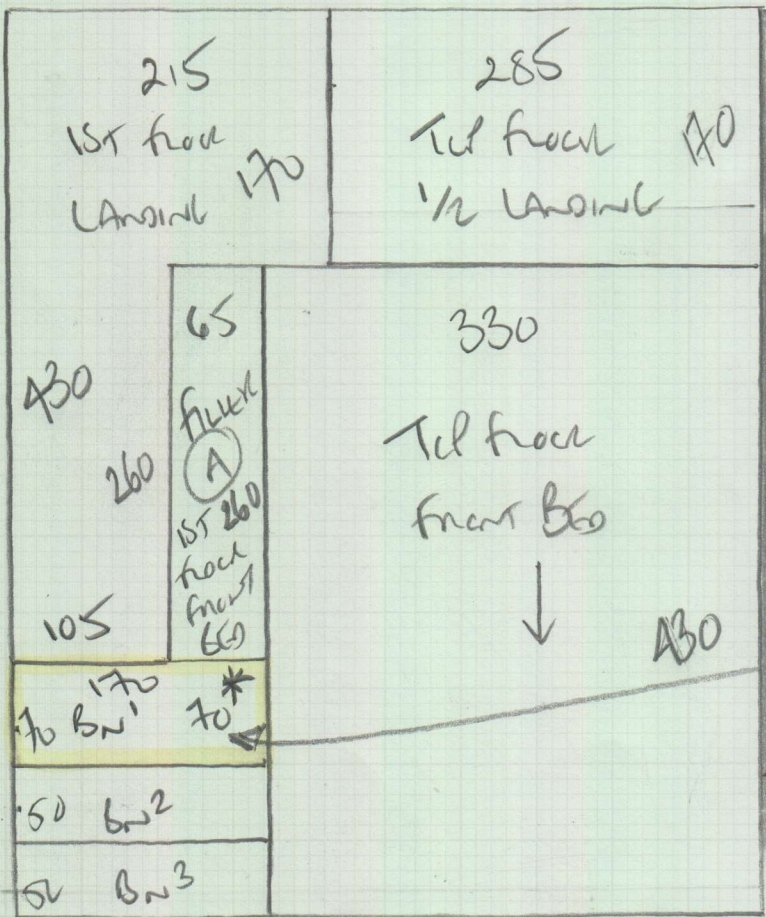 215
1ST FLOOR
LANDING 170
285
TOP FLOOR 170
1/2 LANDING
430
260
105
65
FILLER
A
1ST 260
FLOOR
FRONT
BED
330
TOP FLOOR
FRONT BED
430
170 *
70 BN1 70
50 BN2
50 BN3